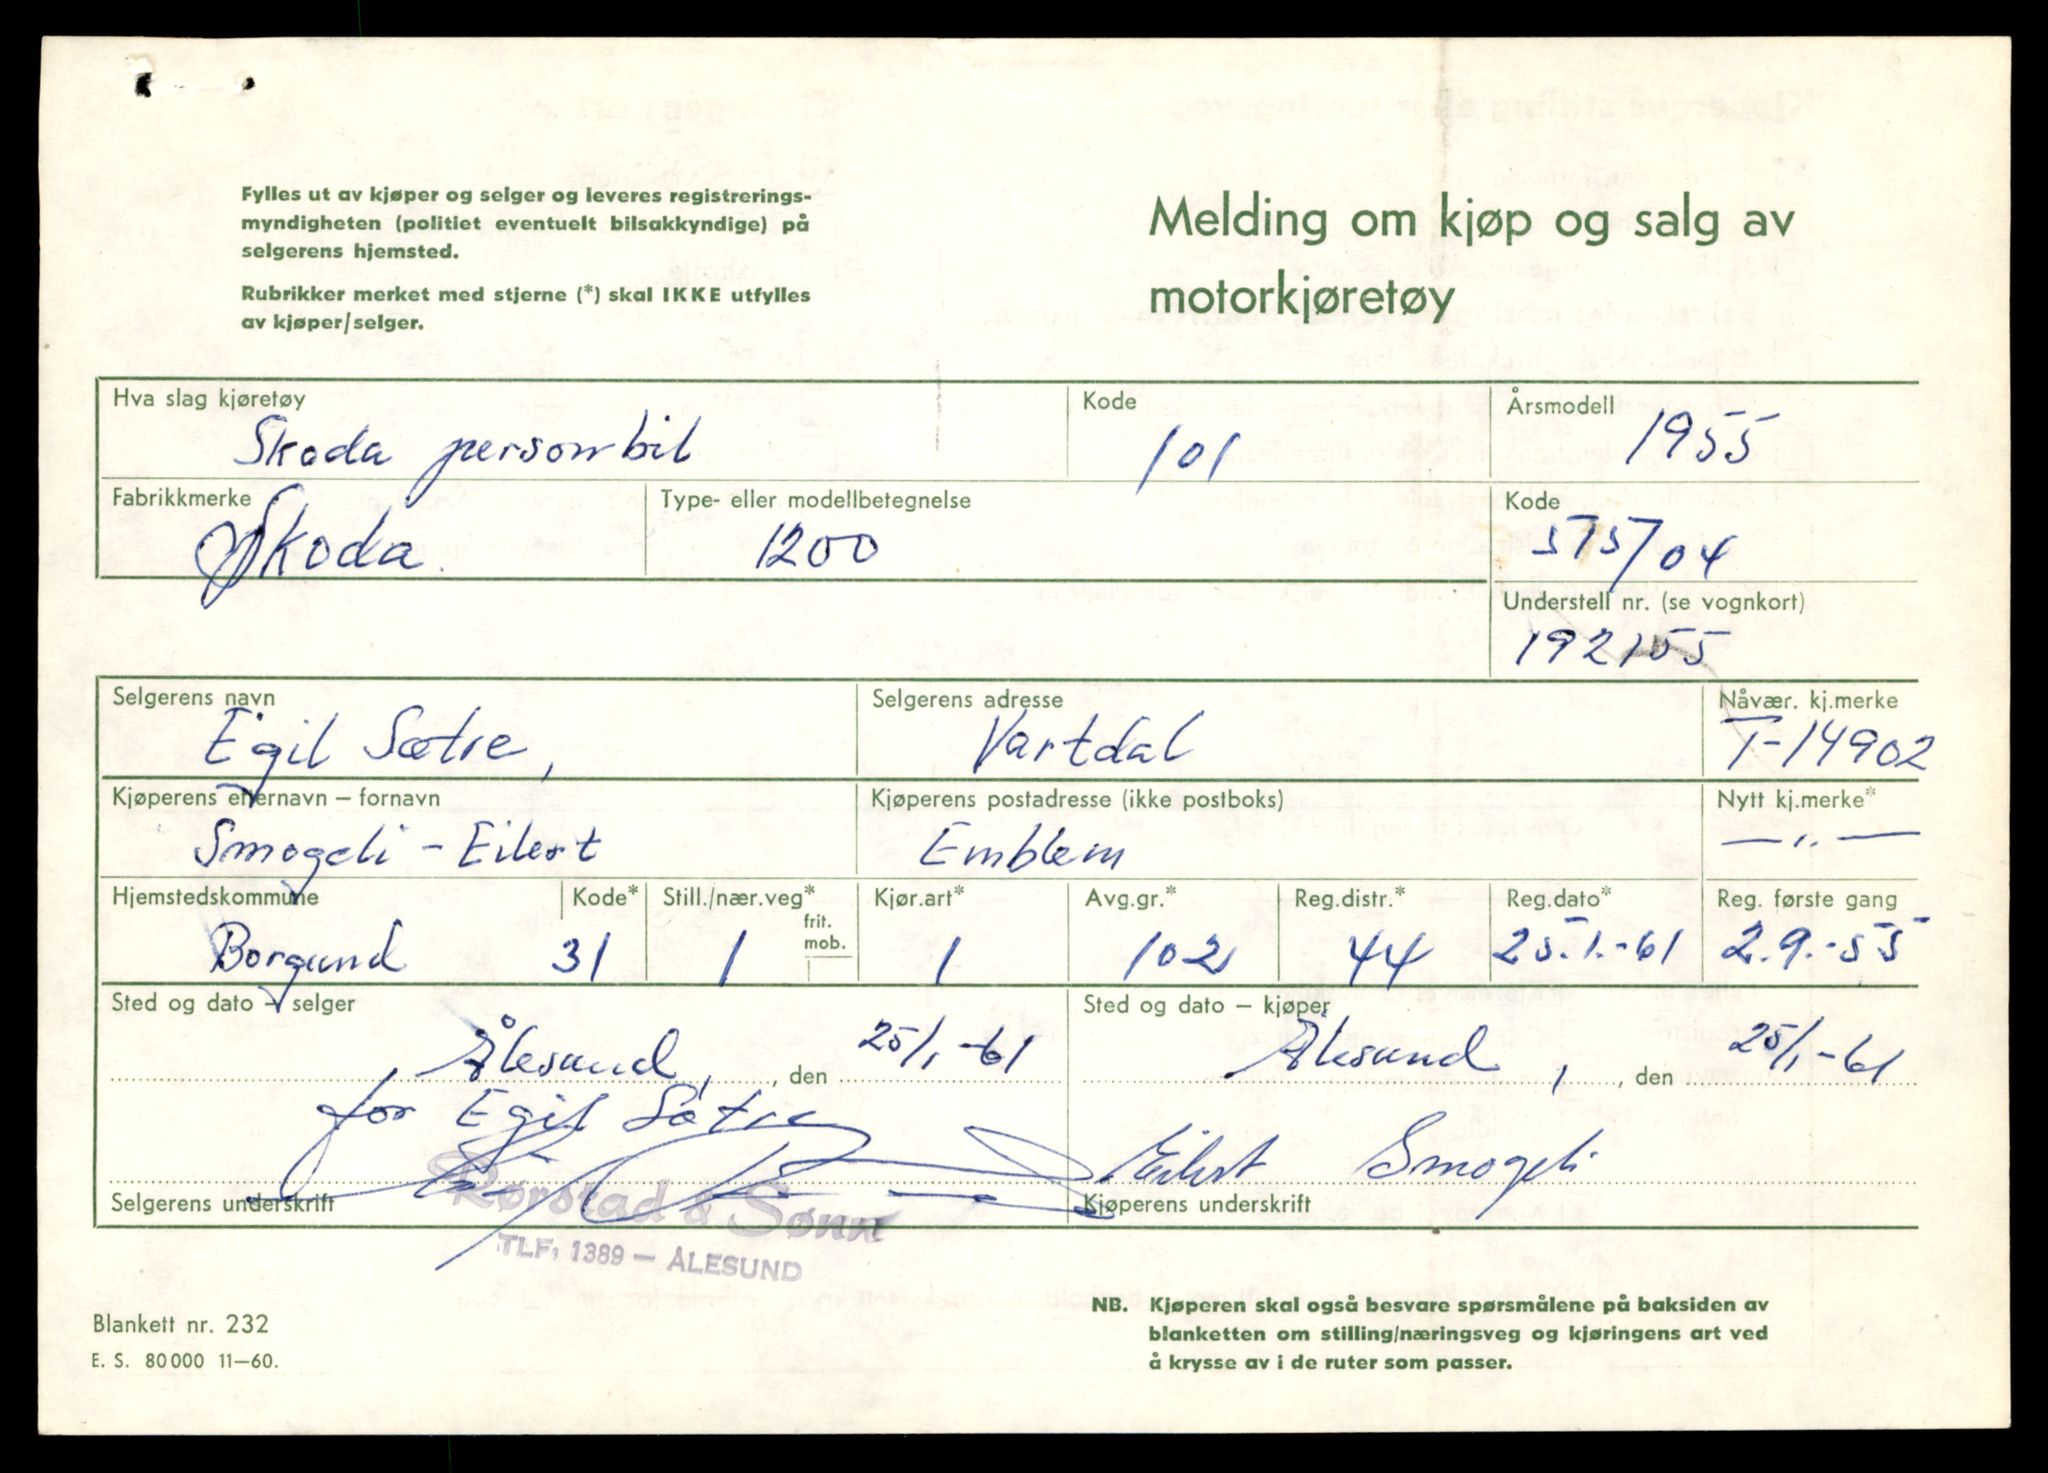 Fylles ut av kjøper og selger og leveres registrerings-
myndigheten (politiet eventuelt bilsakkyndige) på
selgerens hjemsted.
Rubrikker merket med stjerne (*) skal IKKE utfylles
av kjøper/selger.
Melding om kjøp og salg av
motorkjøretøy
Hva slag kjøretøy
Skoda personbil
Kode
101
Årsmodell
1955
Fabrikkmerke
Skoda
Type- eller modellbetegnelse
1200
Kode
575/04
Understell nr. (se vognkort)
192155
Selgerens navn
Egil Sætre,
Selgerens adresse
Vartdal
Nåvær. kj.merke
T-14902
Kjøperens etternavn – fornavn
Smogeli - Eilert
Kjøperens postadresse (ikke postboks)
Emblem
Nytt kj.merke*
— „ —
Hjemstedskommune
Borgund
Kode*
31
Still./nær.veg*
1
frit.
mob.
Kjør.art*
1
Avg.gr.*
102
Reg.distr.*
44
Reg.dato*
25.1.-61
Reg. første gang
2.9.-55
Sted og dato – selger
Ålesund, , den 25/1-61
for Egil Sætre
Selgerens underskrift
Rørstad & Sønn
TLF, 1389 — ÅLESUND
Sted og dato – kjøper
Ålesund, , den 25/1-61
Eilert Smogeli
Kjøperens underskrift
Blankett nr. 232
E. S. 80000 11—60.
NB. Kjøperen skal også besvare spørsmålene på baksiden av
blanketten om stilling/næringsveg og kjøringens art ved
å krysse av i de ruter som passer.